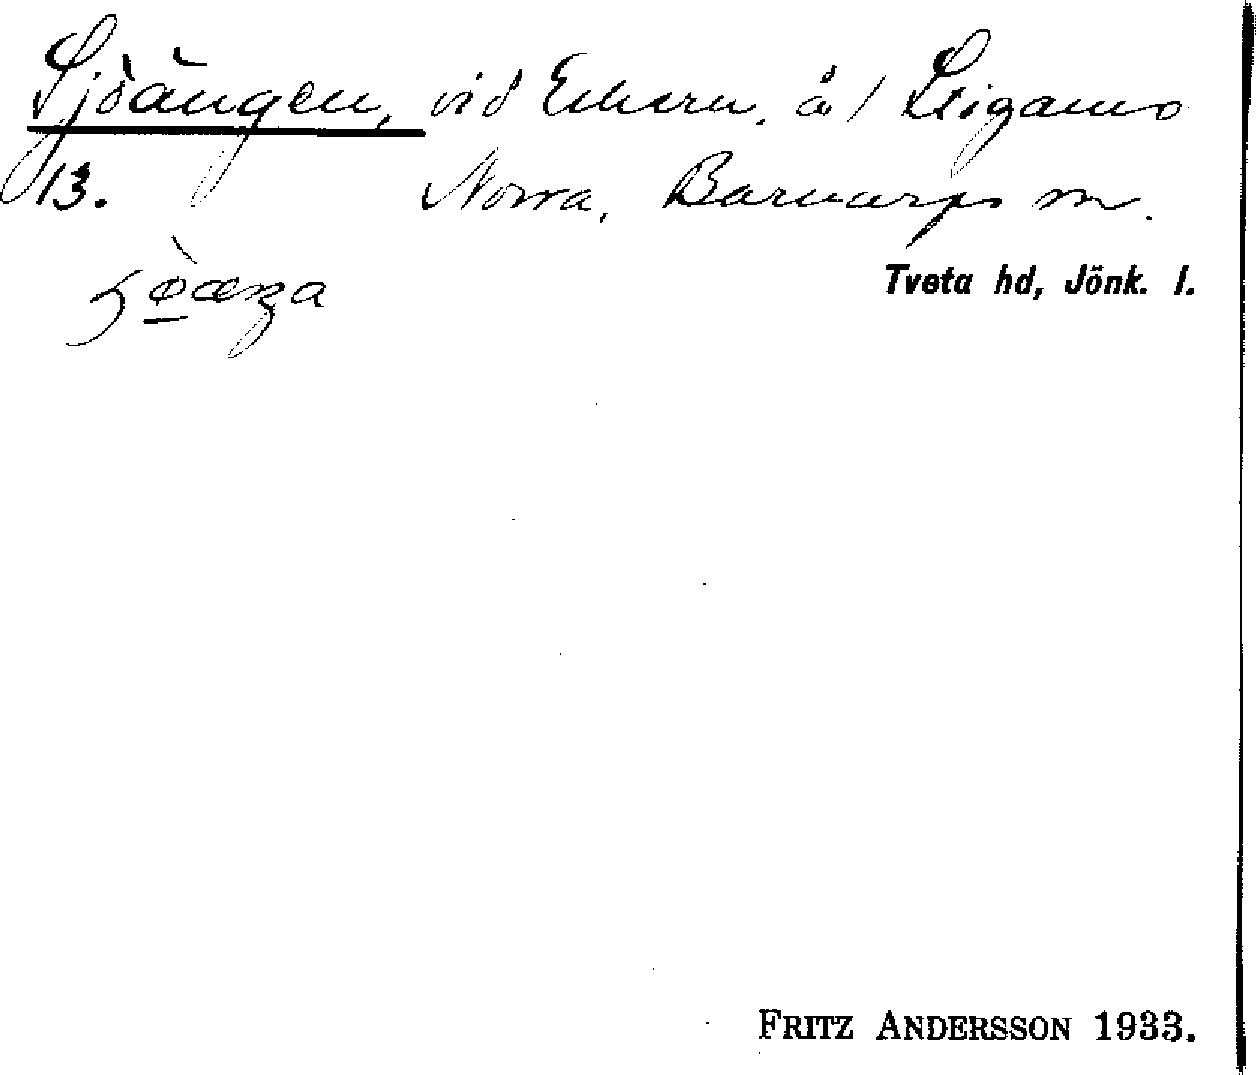 Sjöängen, vid Ekorn. å/ Stigamo
13. Norra, Barnarps sn.
Tveta hd, Jönk. l.
FRITZ ANDERSSON 1933.